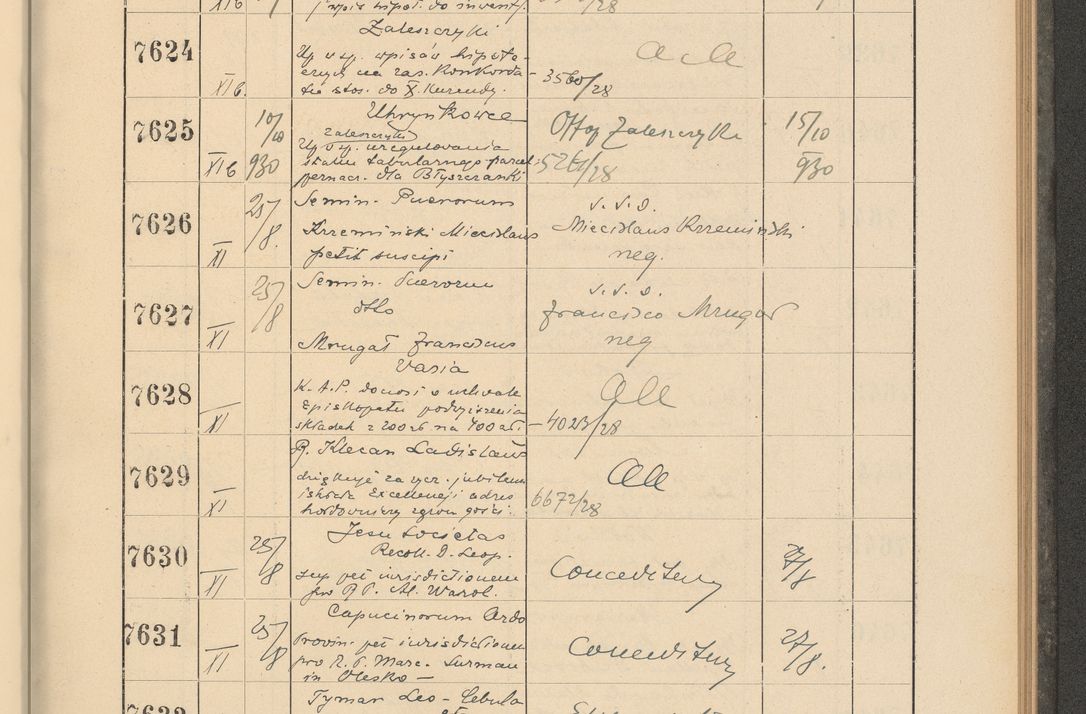 XI b
wpis hipot. do inwent.
/28
7624
XI b.
Zaleszczyki
Up wp. wpisów hipote-
cznych na zas. Konkorda-
tu stos. do X. Kurendy.
3560/28
7625
XI b
10/10
930
Uhryńkowce
Zaleszczyki
Up wp. uregulowania
stanu tabularnego parcel
dla Błyszczanki
Offop Zaleszczyki
/28
15/10
930
7626
XI
25/8.
Semin. Puerorum
Krzemiński Miecislaus
petit suscipi
v. s. o.
Miecislaus Krzemiński
neg.
7627
XI
25/8
Semin. Puerorum
dtto
Mrugał Franciscus
v. s. o.
Francisco Mrugał
neg
7628
XI
Varia
K. A. P. donosi o uchwale
Episkopatu podwyższenia
składek z 200 zł na 400 zł
– 4023/28
7629
XI
R. Klecan Ladislaus
dziękuje za
Excellencji adres
hołdowniczy
6672/28
7630
XI
25/8
Jesu Societas
Recoll. D. Leop.
sup pet iurisdictionem
pro R P. Al. Warol.
Conceditur
27/8
7631
XI
25/8
Capucinorum Ordo
Provin. pet iurisdictionem
pro R. P. Marc. Surman
in Olesko –
Conceditur
27/8.
Tymar Leo - Cebula